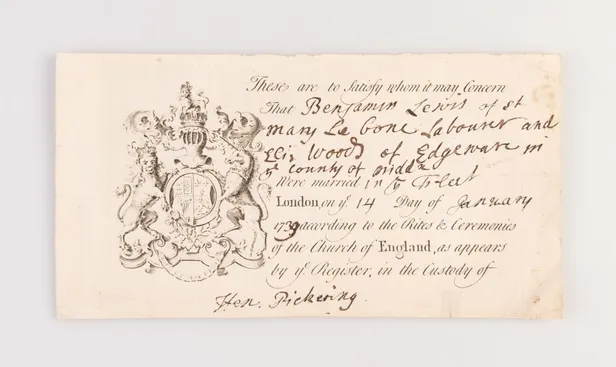 These are to Satisfy whom it may Concern
That Benjamin Lewis of St
Mary Le bone Labourer and
Eliz Woods of Edgeware in
ye County of Middx
Were married in ye Fleet
London, on ye. 14 Day of January
1739 according to the Rites & Ceremonies
of the Church of England, as appears
by ye. Register, in the Custody of
Hen. Pickering.